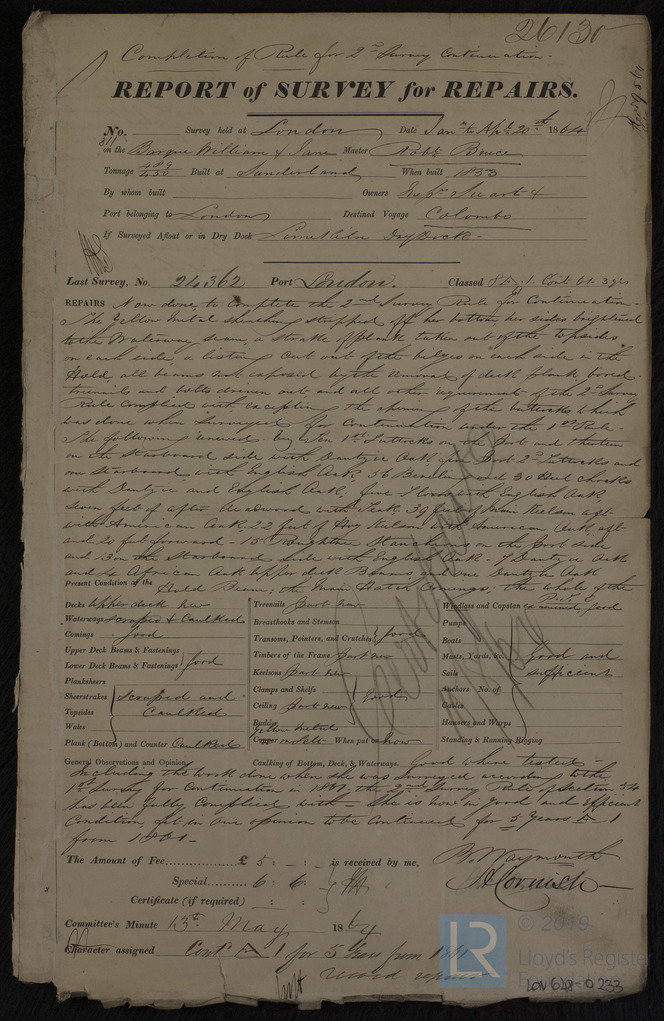 26130
Completion of Rule for 2nd Survey Continuation
REPORT of SURVEY for REPAIRS.
No. Survey held at London Date Jany to Apl 20th 1864
on the Barque William & Jane Master Robt Bruce
Tonnage 449 430 Built at Sunderland When built 1833
By whom built Owners Stuart &
Port belonging to London Destined Voyage Colombo
If Surveyed Afloat or in Dry Dock Limekiln Dry Dock
Last Survey, No. 24362 Port London. Classed Cont 61 3 yrs
REPAIRS Now done to complete the 2nd Survey Rule for Continuation
The Yellow Metal sheathing stripped off her bottom, her sides brightened
to the Waterway seam, a strake of plank taken out of the topsides
on each side a listing cut out of the bilges on each side in the
Hold, all beams not exposed by the removal of deck plank bored
treenails and bolts driven out and all other requirements of the 2nd Survey
Rule complied with excepting the opening of the buttocks which
was done when surveyed for Continuation under the 1st Rule
The following renewed viz Ten 1st Futtocks on the Port and thirteen
on the Starboard side with Dantzic Oak, Port 2nd Futtocks and
one Starboard with English Oak, 56 and 30 Heel chocks
with Dantzic and English Oak, five Floors with English Oak,
seven feet of after deadwood with Teak, 39 feet of Main Kelson aft
with American Oak, 22 feet of Kelson with American Oak aft
and 20 feet forward - 15 Stanchions on the Port side
and 13 on the Starboard side with English Oak - 7 Dantzic Oak
and 4 African Oak Upper deck Beams and one Dantzic Oak
Hold Beam; the Main Hatch Comings; the whole of the
Present Condition of the
Decks Upper deck new Treenails part new Windlass and Capstan examined good
Waterways scraped & Caulked Breasthooks and Stemson Pumps
Comings good Transoms, Pointers, and Crutches good Boats
Upper Deck Beams & Fastenings Timbers of the Frame part new Masts, Yards, &c. Good and
Lower Deck Beams & Fastenings good Keelsons part new Sails sufficient
Planksheers Clamps and Shelfs good Anchors No. of
Sheerstrakes scraped and Ceiling part new Cables
Topsides Caulked Rudder Hawsers and Warps
Wales Yellow metal
Plank (Bottom) and Counter Caulked Copper on Felt When put on now Standing & Running Rigging
General Observations and Opinion Caulking of Bottom, Deck, & Waterways. Good where tested
Including the work done when she was surveyed according to the
1st Survey for Continuation in 1861, the 2nd Survey Rule of Section 54
has been fully complied with - she is now in good and efficient
Condition, fit in our opinion to be Continued for 5 Years A 1
from 1861
The Amount of Fee £ 5 : - : - is received by me,
Special 6 : 6 :
Certificate (if required) : :
B. Waymouth
Cornish
Committee's Minute 13th May 1864
Character assigned Cont A 1 for 5 Years from 1861
record repairs
LR
© 2019
Lloyd's Register
Foundation
LON 648-0233